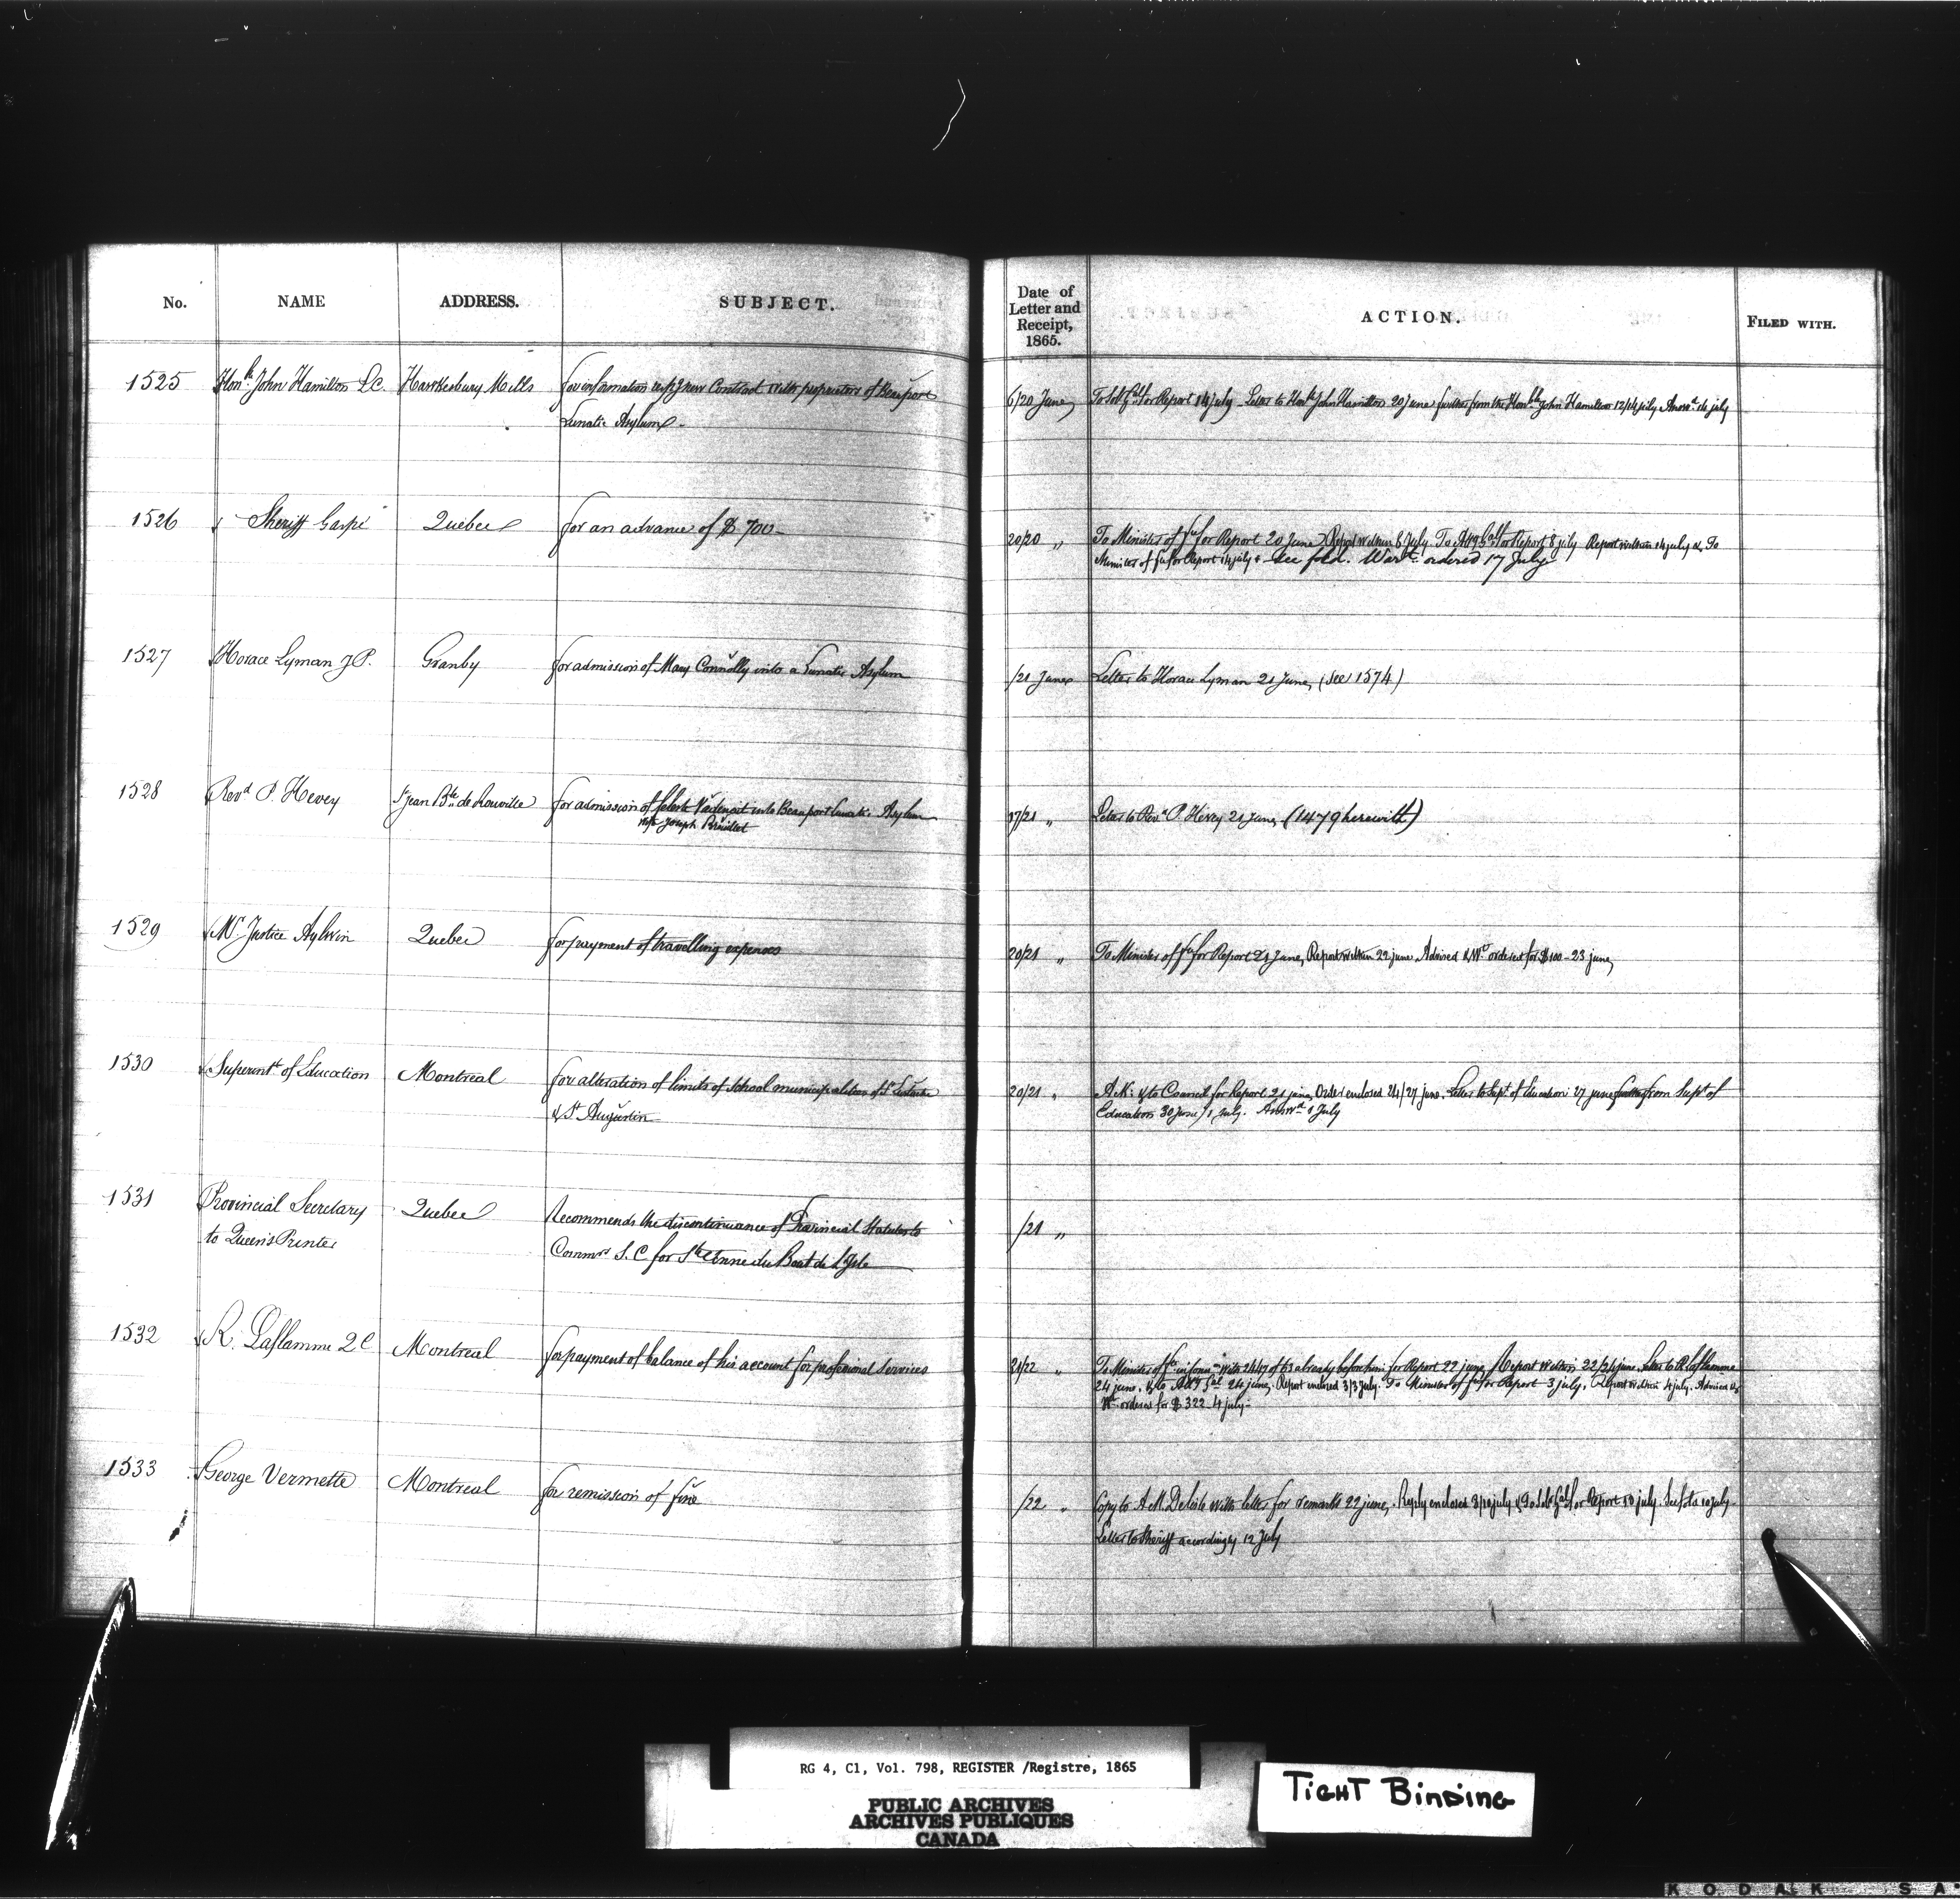 No. NAME ADDRESS. SUBJECT. Date of Letter and Receipt, 1865. ACTION. FILED WITH.
1525 Honble John Hamilton L.C. Hawkesbury Mills for information respg new Contract with proprietors of Beauport
Lunatic Asylum -
6/20 June To Sol Genl for Report 14 july Letter to Honble John Hamilton 20 june further from the Honble John Hamilton 12/14 july Answd 14 july
1526 Sheriff Gaspé Quebec for an advance of $ 700 -
20/20 " To Minister of Fce for Report 20 June Report within 8 July To Atty Genl for Report 8 july Report within 14 july & To
Minister of Fce for Report 14 july & See fold. Warrt ordered 17 July
1527 Horace Lyman J.P. Granby for admission of Mary Connolly into a Lunatic Asylum
/21 June Letter to Horace Lyman 21 June, (see 1574)
1528 Revd P. Hevey St Jean Bte de Rouville for admission of into Beauport Lunatic Asylum
wife Joseph
17/21 " Letter to Revd P. Hevey 21 June, (1479 herewith)
1529 Mr Justice Aylwin Quebec for payment of travelling expenses
20/21 " To Minister of Fce for Report 21 June, Report within 22 june Advised & Wt ordered for $100 - 23 june
1530 Superintt of Education Montreal for alteration of limits of school municipalities of St Eustache
& St Augustin
20/21 " Ack: & to Council for Report 21 june, Order enclosed 24/27 june. Letter to Supt of Education 27 june further from Supt of
Education 30 June/1 July. Answd 1 July
1531 Provincial Secretary Quebec Recommends the discontinuance of Provincial Statutes to
to Queen's Printer Commrs S.C for Ste Anne du Bout de l'Isle
/21 "
1532 R. Laflamme QC Montreal for payment of balance of his account for professional services
21/22 " To Minister of Fce with 2447 of 63 already before him for Report 22 june, Report within 22/24 june. Letter to R Laflamme
24 june. & to Atty Genl 24 june. Report enclosed 3/3 July. To Minister of Fce for Report 3 july. Report within 4 july. Advised &
Wt ordered for $ 322 4 july -
1533 George Vermette Montreal for remission of fine
/22 " Copy to A.M. Delisle with letter for remarks 22 june, Reply enclosed 8/10 july & To Sol Genl for Report 10 july. 10 july
Letter to Sheriff accordingly 12 July
RG 4, C1, Vol. 798, REGISTER /Registre, 1865
PUBLIC ARCHIVES
ARCHIVES PUBLIQUES
CANADA
TIGHT BINDING
KODAK SA